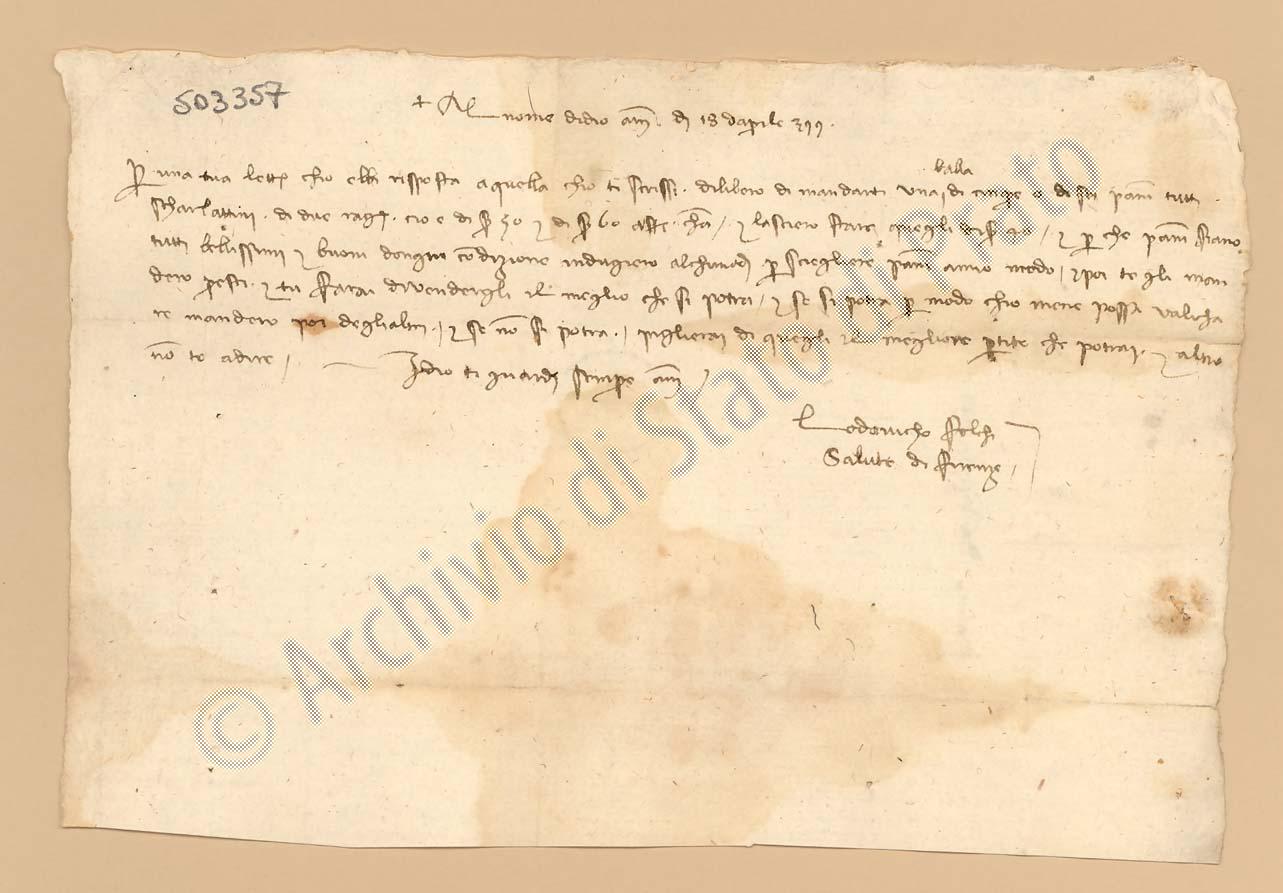 503357
+ Al nome di dio am. di 18 daprile 399.
balla
P una tua lett chio ebbi risposta a quella chio ti scrissi. dilibero di mandarti una di cinque o di sei panni tutti
scharlattini. di due rag. cioe di 50 e di 60 e lasciero stare quegli e per che panni siano
tutti bellissimi e buoni dongni condizione indugiero alchuno di p sciegliere panni a mio modo, e poi te gli man
dero presti. e tu farai di vendergli il meglio che si potra, e se si potra p modo chio mene possa valicha
re mandero poi deglialtri, e se non si potra, piglierai di quegli il megliore partito che potrai. e altro
non to a dire, Idio ti guardi sempre am
Lodovicho
Salute di Firenze
© Archivio di Stato di Prato